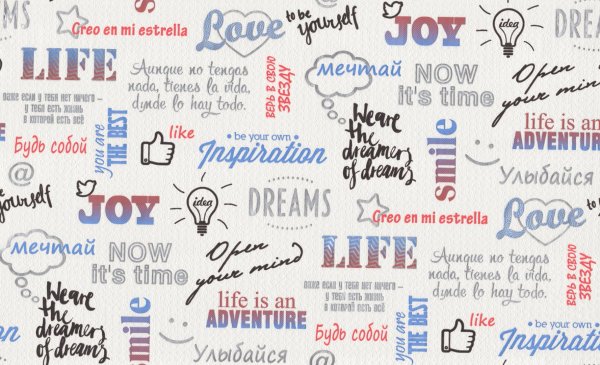 DREAMS
Creo en mi estrella
Love
to be
yourself
JOY
idea
DREA
LIFE
Aunque no tengas
nada, tienes la vida,
dynde lo hay todo.
ВЕРЬ В СВОЮ
ЗВЕЗДУ
мечтай
NOW
it's time
Open
your mind
даже если у тебя нет ничего –
у тебя есть жизнь
в которой есть всё
Будь собой
you are
THE BEST
like
• be your own •
Inspiration
We are
the
dreamers
of dreams
smile
life is an
ADVENTURE
Улыбайся
@
to be
yourself
JOY
idea
DREAMS
Creo en mi estrella
Love
to be
мечтай
NOW
it's time
Open
your mind
LIFE
Aunque no tengas
nada, tienes la vida,
dynde lo hay todo.
ВЕРЬ В СВОЮ
ЗВЕЗДУ
We are
the
dreamers
of dreams
smile
life is an
ADVENTURE
даже если у тебя нет ничего –
у тебя есть жизнь
в которой есть всё
Будь собой
you are
THE BEST
like
• be your own •
Inspiration
Улыбайся
@